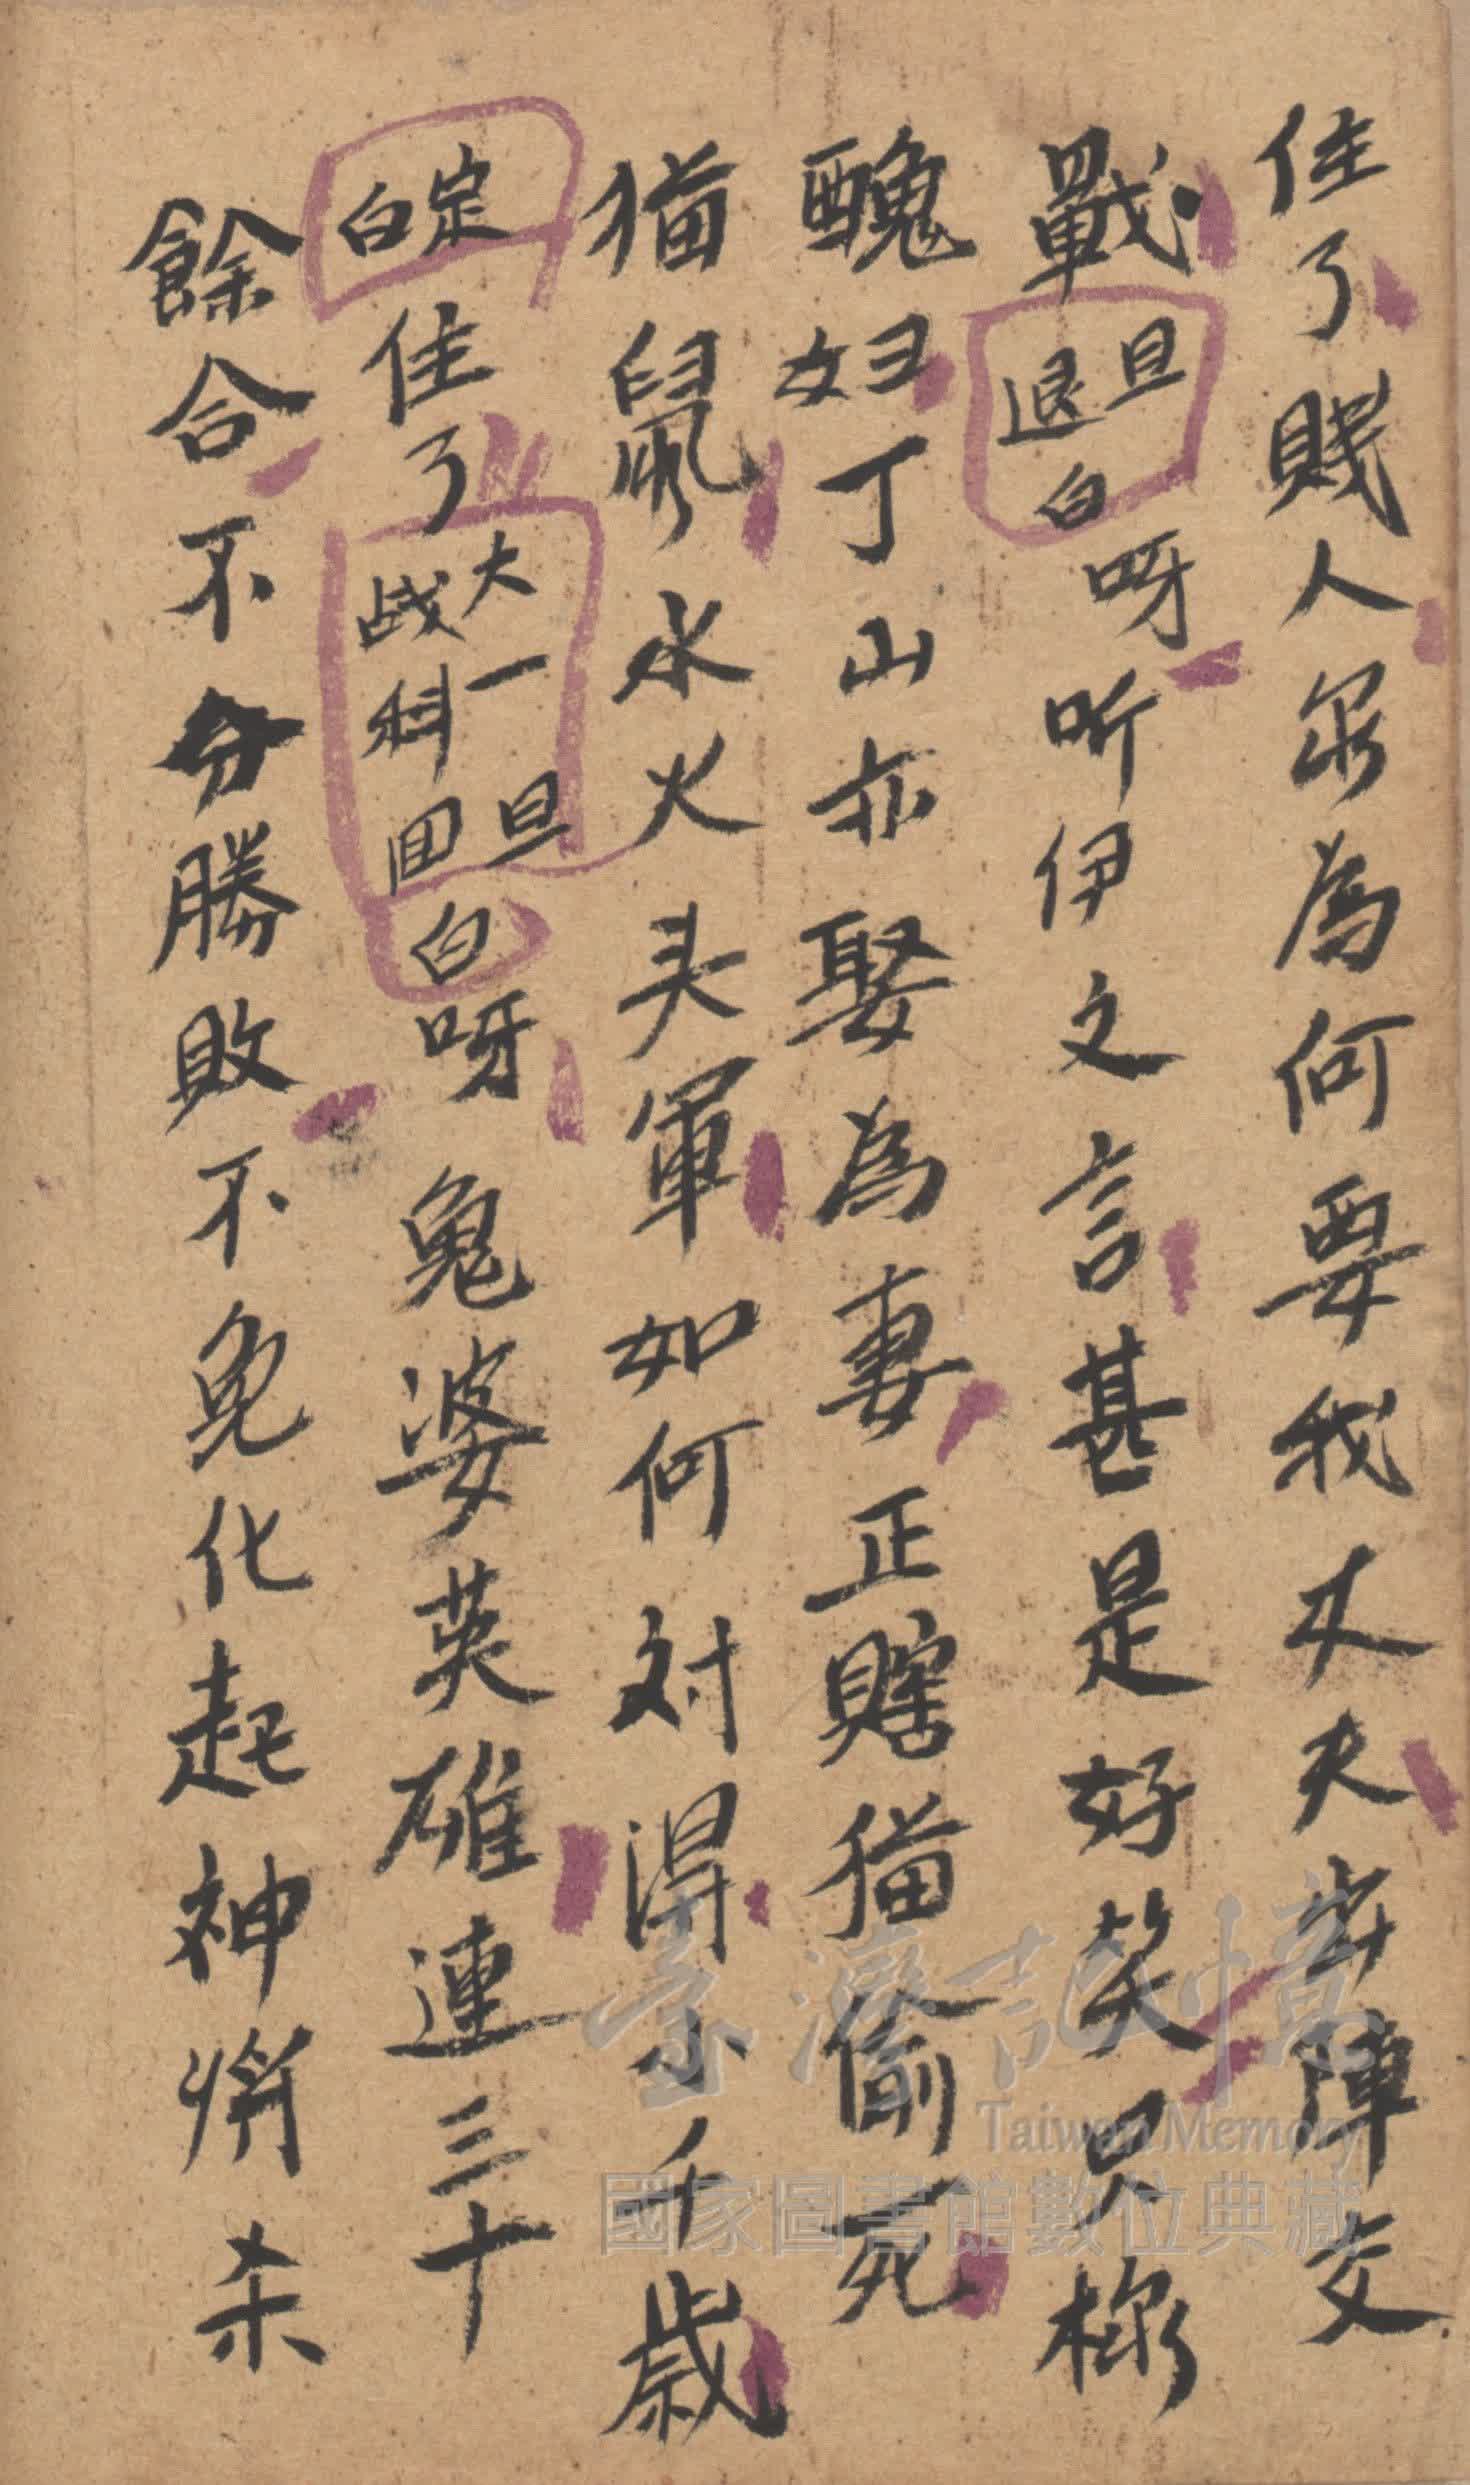 住了賤人尔為何要我丈夫出陣交
戰旦退白呀听伊之言甚是好笑只樣
醜婦丁山亦娶為妻正瞎猫偷死
猫鼠水火头軍如何対得小千歲
定白住了大战一科旦回白呀鬼婆英雄連三十
餘合不分勝敗不免化起神將杀
臺灣記憶
Taiwan Memory
國家圖書館數位典藏